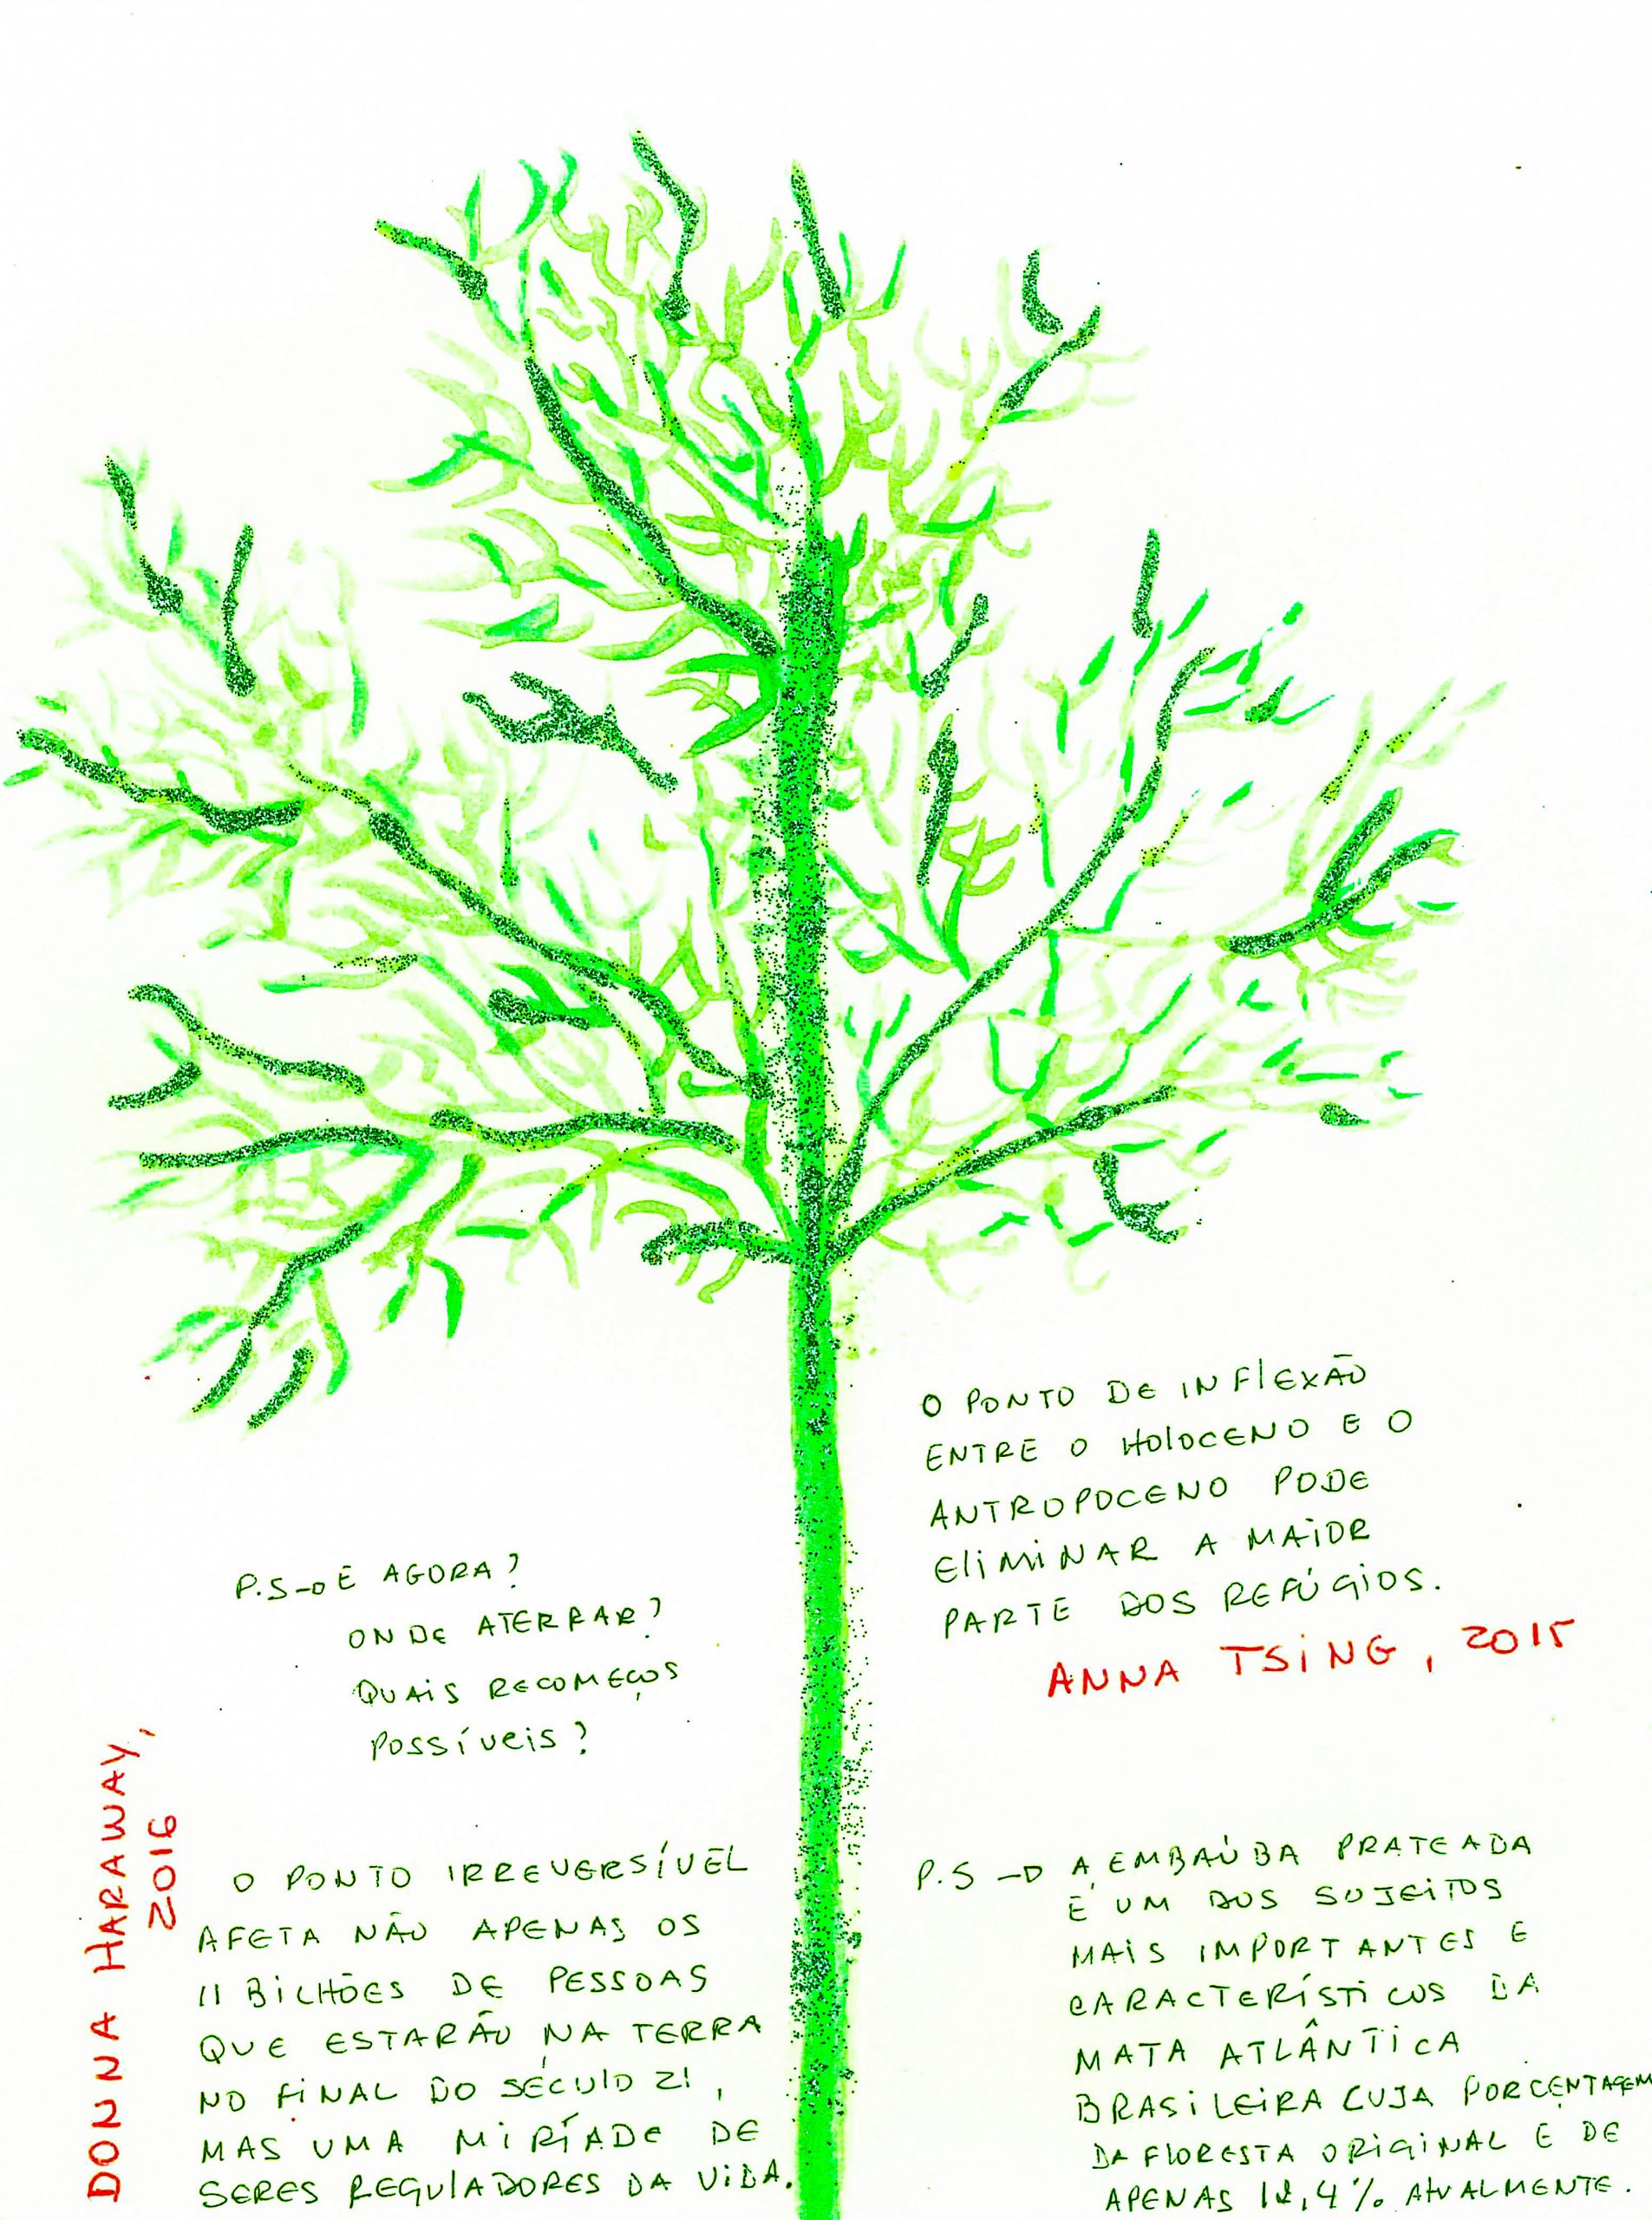 O PONTO DE INFLEXÃO
ENTRE O HOLOCENO E O
ANTROPOCENO PODE
ELIMINAR A MAIOR
PARTE DOS REFÚGIOS.
ANNA TSING, 2015
P.S → E AGORA?
ONDE ATERRAR?
QUAIS RECOMEÇOS
POSSÍVEIS?
DONNA HARAWAY,
2016
O PONTO IRREVERSÍVEL
AFETA NÃO APENAS OS
11 BILHÕES DE PESSOAS
QUE ESTARÃO NA TERRA
NO FINAL DO SÉCULO 21,
MAS UMA MIRÍADE DE
SERES REGULADORES DA VIDA.
P.S → A EMBAÚBA PRATEADA
É UM DOS SUJEITOS
MAIS IMPORTANTES E
CARACTERÍSTICOS DA
MATA ATLÂNTICA
BRASILEIRA CUJA PORCENTAGEM
DA FLORESTA ORIGINAL É DE
APENAS 12,4% ATUALMENTE.